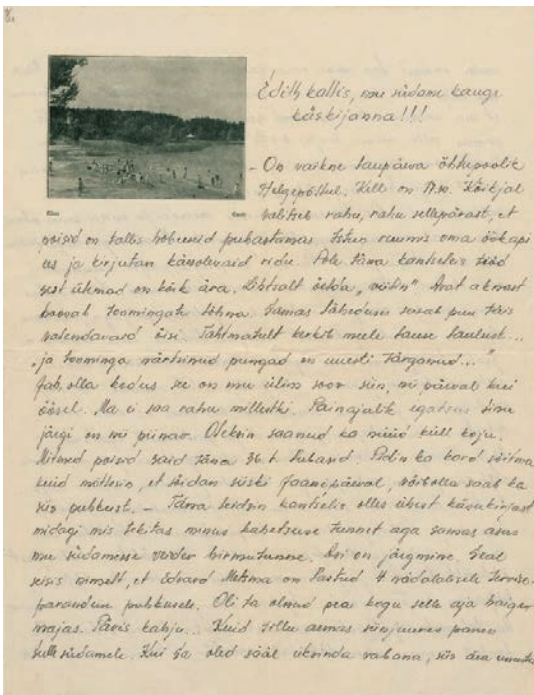 Edith kallis, mu südame kauge
käskijanna!!!
- On vaikne laupäeva õhtupoolik
Helgepõllul. Kell on 17.10. Kõikjal
valitseb rahu, rahu sellepärast, et
poisid on tallis hobuseid puhastamas. Istun ruumis oma öökapi
ees ja kirjutan käesolevaid ridu. Pole täna kantseleis tööd
sest ülemad on kõik ära. Lihtsalt öelda „viilin”. Avat aknast
hoovab toomingate lõhna. Samas läheduses seisab puu täis
valendavaid õisi. Tahtmatult kerkib meele lause laulust...
„ja toominga närtsinud pungad on uuesti tärganud...”
Jah, olla kodus see on mu ülim soov siin, nii päeval kui
öösel. Ma ei saa rahu millestki. Painajalik igatsus sinu
järgi on nii piinav. Oleksin saanud ka nüüd küll koju.
Mitmed poisid said täna 36 t. lubasid. Pidin ka kord sõitma
kuid mõtlesin, et sõidan siiski jaanipäeval, võibolla saab ka
siis puhkust. - Täna leidsin kantseleis olles ühest käsukirjast
midagi mis tekitas minus kahetsuse tunnet aga samas asus
mu südamesse väike hirmutunne. Asi on järgmine. Seal
seisis nimelt, et Edvard Metsma on lastud 4 nädalalisele tervise-
parandus puhkusele. Oli ta olnud pea kogu selle aja haige-
majas. Päris kahju... Kuid sillu armas siinjuures panen
sulle südamele. Kui sa oled sääl üksinda vabana, siis ära unusta